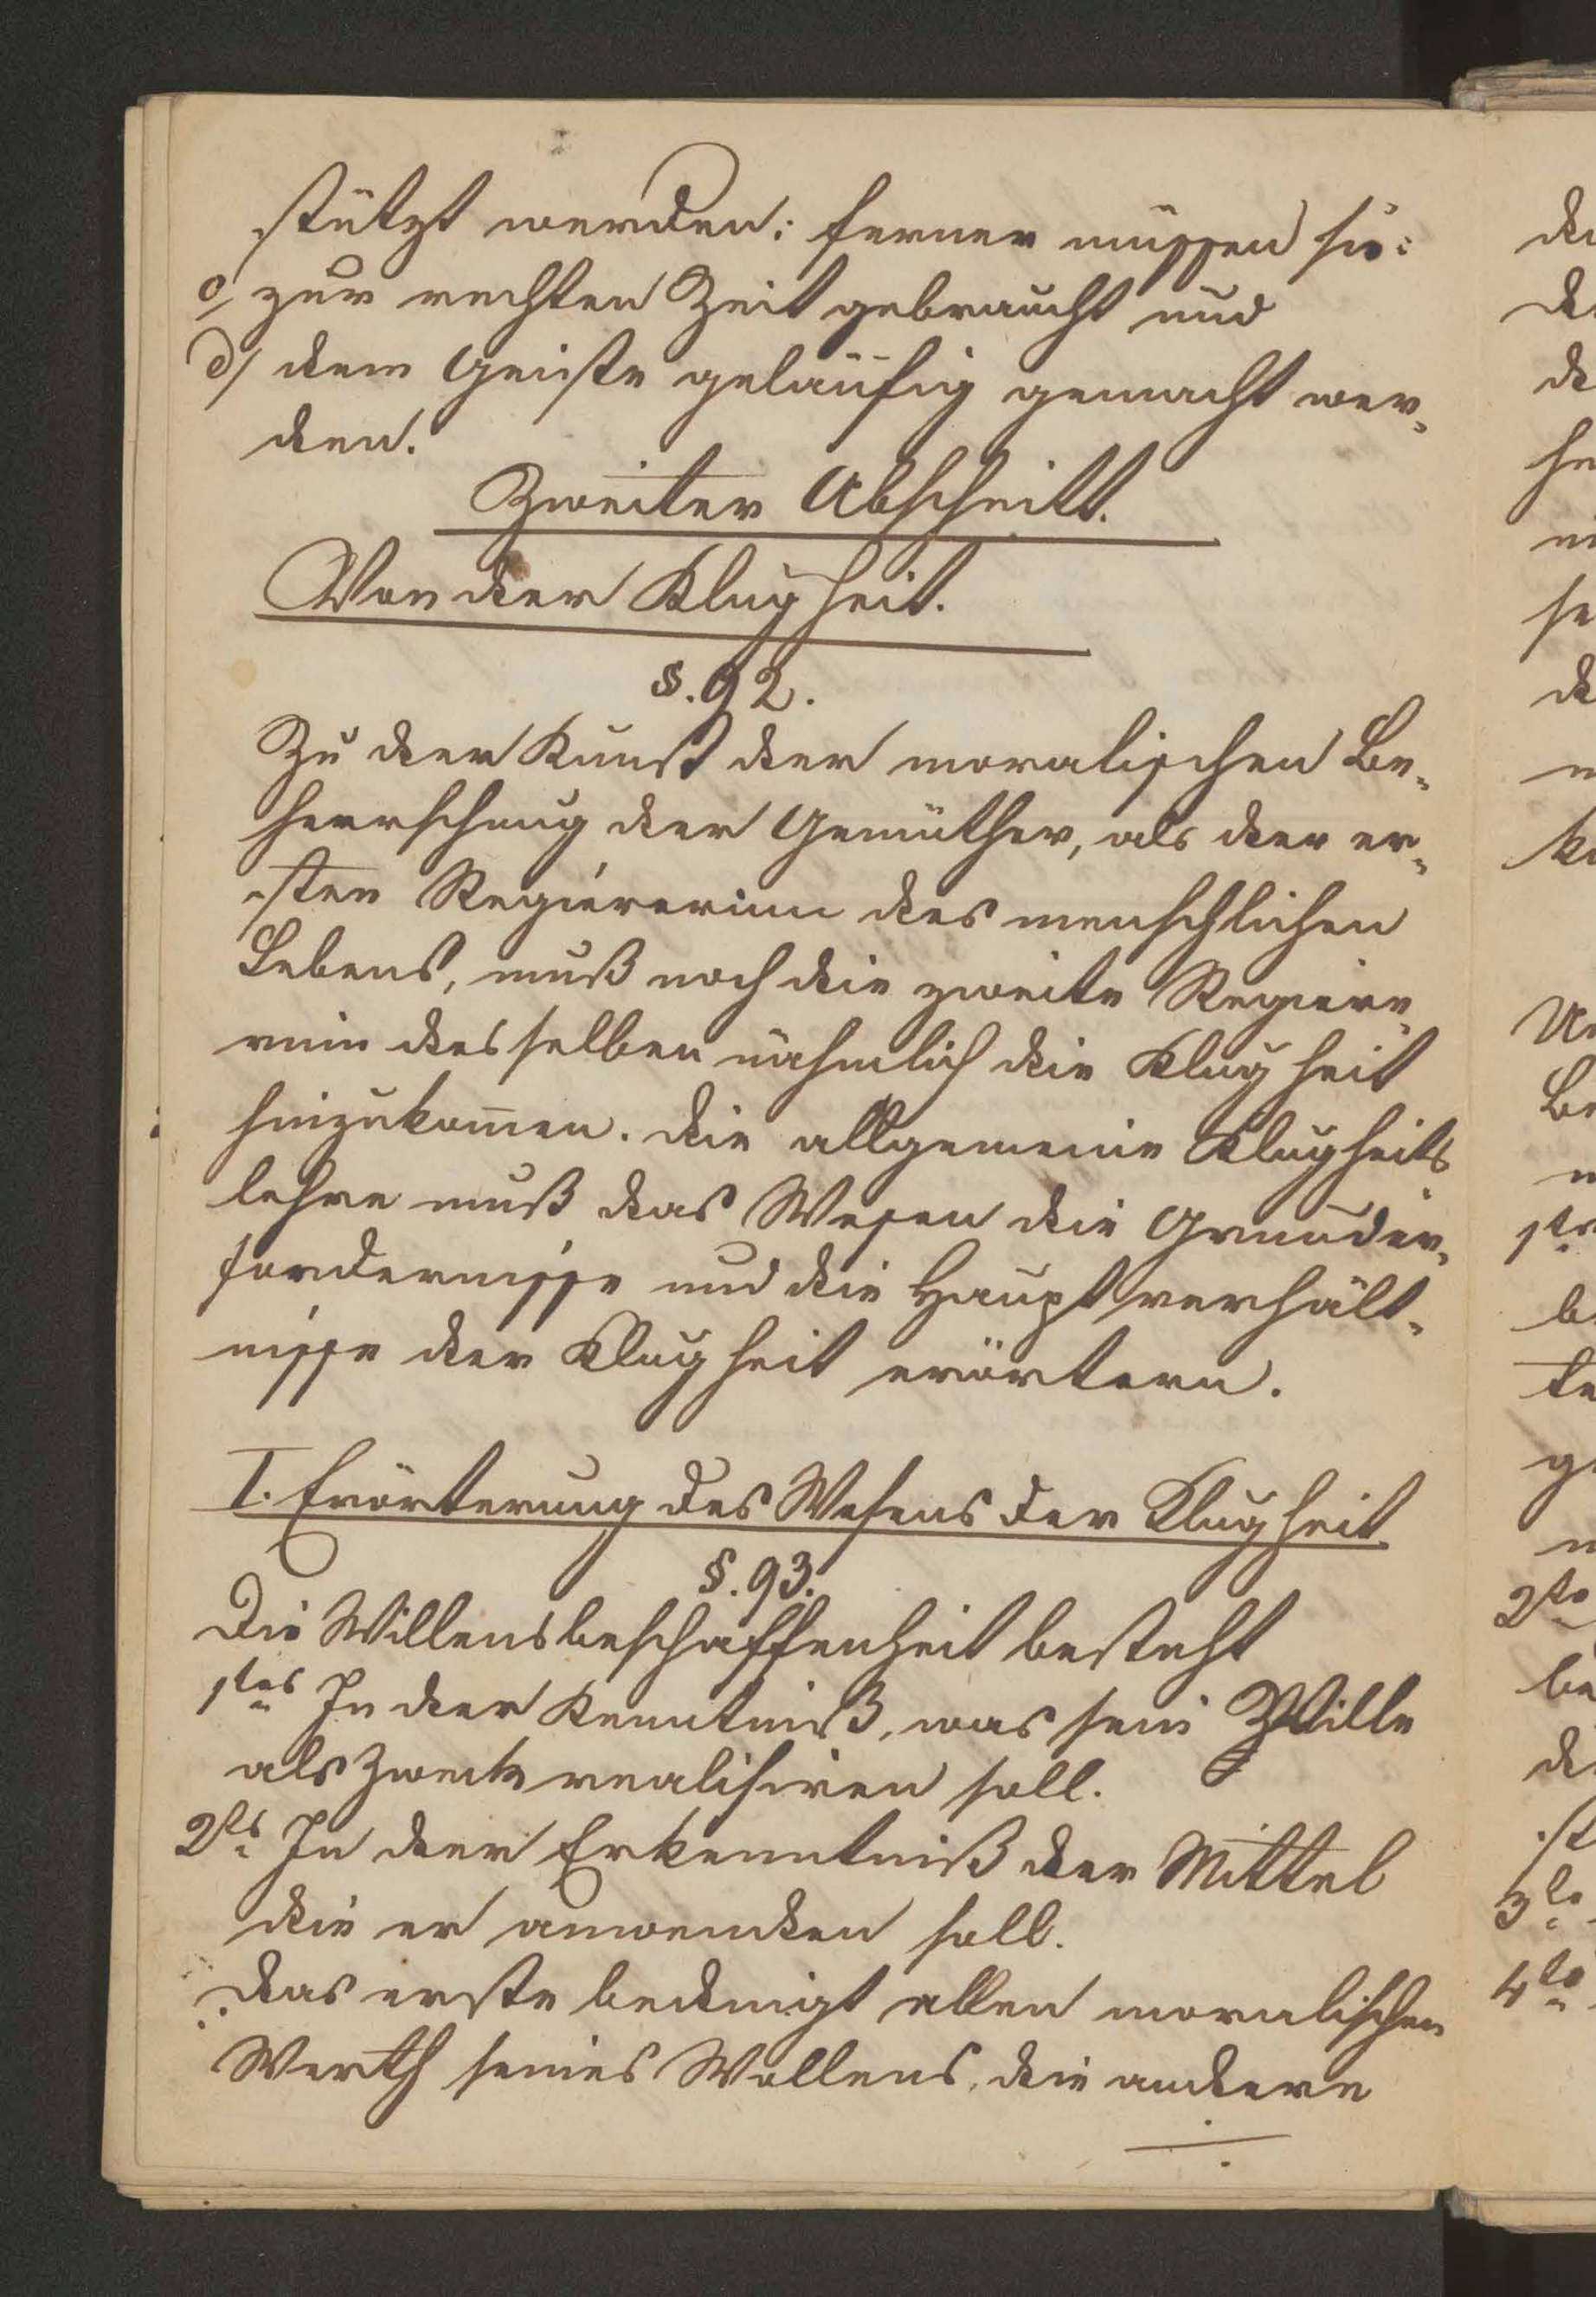 stützt werden; ferner müssen sie:
c/ zur rechten Zeit gebraucht und
d/ dem Geiste geläufig gemacht wer-
den.
Zweiter Abschnitt.
Von der Klugheit.
§. 92.
Zu der Kunst der moralischen Be-
herrschung der Gemüther, als der er-
sten Regiererinn des menschlichen
Lebens, muß noch die zweite Regiere-
rinn desselben nähmlich die Klugheit
hinzukom̄en. Die allgemeine Klugheits
lehre muß das Wesen die Grunder-
fordernisse und die Hauptverhält-
nisse der Klugheit erörtern.
I. Erörterung des Wesens der Klugheit.
§. 93.
Die Willensbeschaffenheit besteht
1tes In der Kenntniß, was sein Wille
als Zweck realisiren soll.
2ts In der Erkenntniß der Mittel
die er anwenden soll.
Das erste bedingt allen moralischen
Werth seines Wollens, die andere